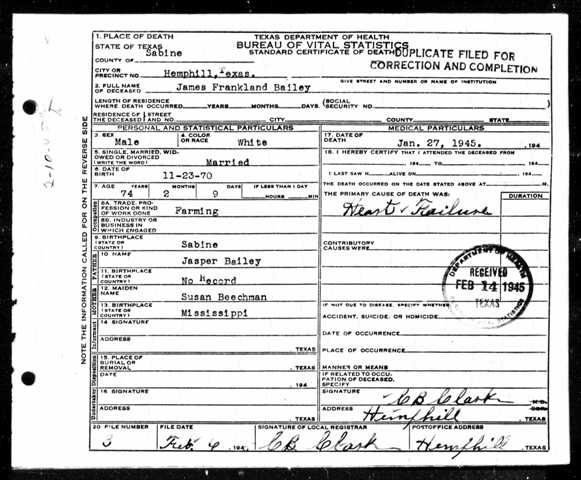 1. PLACE OF DEATH
TEXAS DEPARTMENT OF HEALTH
BUREAU OF VITAL STATISTICS
STANDARD CERTIFICATE OF DEATH
DUPLICATE FILED FOR
CORRECTION AND COMPLETION
STATE OF TEXAS
COUNTY OF Sabine
CITY OR PRECINCT NO. Hemphill, Texas.
GIVE STREET AND NUMBER OR NAME OF INSTITUTION
2. FULL NAME OF DECEASED James Frankland Bailey
LENGTH OF RESIDENCE WHERE DEATH OCCURRED YEARS MONTHS DAYS (SOCIAL SECURITY NO.
RESIDENCE OF THE DECEASED STREET AND NO. CITY COUNTY STATE
PERSONAL AND STATISTICAL PARTICULARS
3. SEX Male
4. COLOR OR RACE White
5. SINGLE, MARRIED, WIDOWED OR DIVORCED Married
6. DATE OF BIRTH 11-23-70
7. AGE 74 YEARS 2 MONTHS 9 DAYS IF LESS THAN 1 DAY HOURS MIN
8A. TRADE, PROFESSION OR KIND OF WORK DONE Farming
8B. INDUSTRY OR BUSINESS IN WHICH ENGAGED
9. BIRTHPLACE (STATE OR COUNTRY) Sabine
10. NAME Jasper Bailey
11. BIRTHPLACE (STATE OR COUNTRY) No Record
12. MAIDEN NAME Susan Beechman
13. BIRTHPLACE (STATE OR COUNTRY) Mississippi
14. SIGNATURE
ADDRESS NAME TEXAS
15. PLACE OF BURIAL OR REMOVAL TEXAS
DATE 194
16. SIGNATURE
ADDRESS TEXAS
MEDICAL PARTICULARS
17. DATE OF DEATH Jan. 27, 1945. 194
18. I HEREBY CERTIFY THAT I ATTENDED THE DECEASED FROM
194 TO 194
I LAST SAW H ALIVE ON 194
THE DEATH OCCURRED ON THE DATE STATED ABOVE AT M.
THE PRIMARY CAUSE OF DEATH WAS:
Heart Failure
CONTRIBUTORY CAUSES WERE:
DEPARTMENT OF HEALTH
RECEIVED
FEB 14 1945
TEXAS
STATISTICS
IF NOT DUE TO DISEASE, SPECIFY WHETHER
ACCIDENT, SUICIDE, OR HOMICIDE
DATE OF OCCURRENCE
PLACE OF OCCURRENCE
MANNER OR MEANS
IF RELATED TO OCCUPATION OF DECEASED, SPECIFY
SIGNATURE CB Clark M.D.
ADDRESS Hemphill TEXAS
20 FILE NUMBER 3
FILE DATE Feb. 6 194
SIGNATURE OF LOCAL REGISTRAR CB Clark
POSTOFFICE ADDRESS Hemphill, TEXAS
NOTE THE INFORMATION CALLED FOR ON THE REVERSE SIDE
Occupation
FATHER
MOTHER
Informant
Disposition
Undertaker